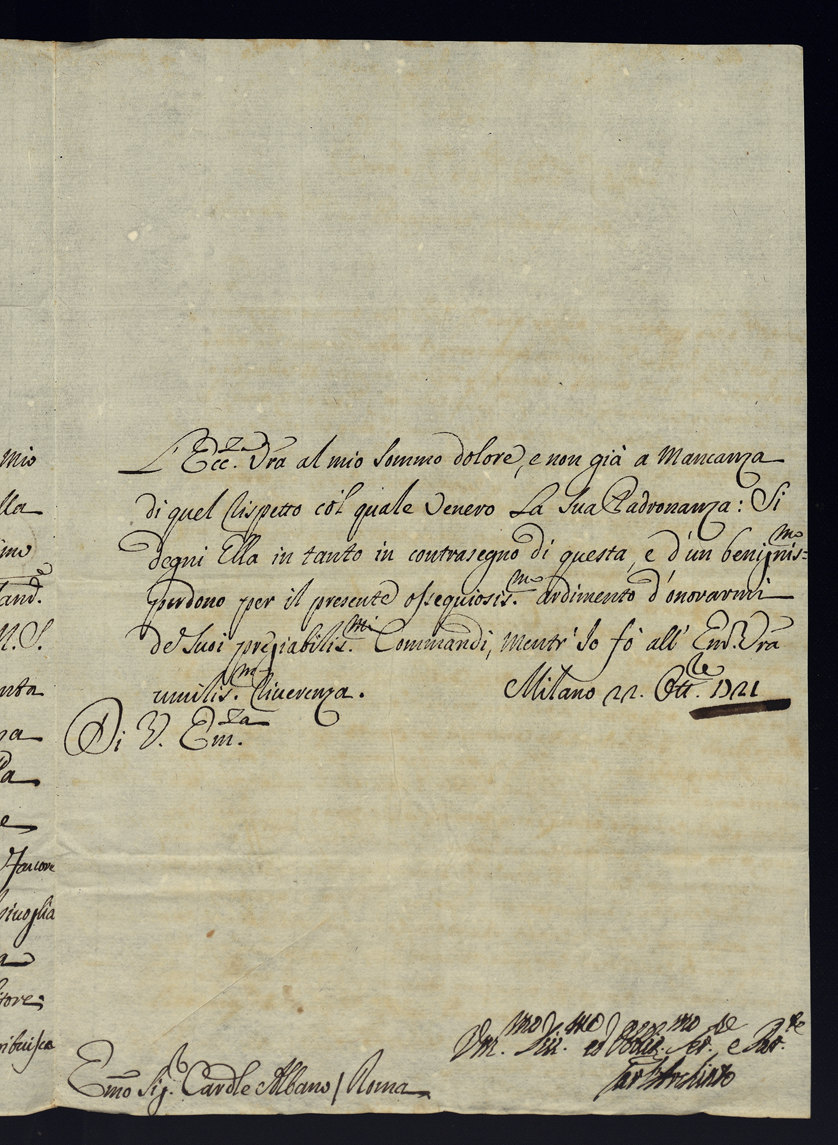 mio
lla
imo
tand.e
N. S.
nta
pa
lla
e
Favore
sivoglia
a
itore;
ribuisca
L'Ecc.za Vra al mio sommo dolore, e non già a mancanza
di quel rispetto col quale venero la sua Padronanza: Si
degni Ella in tanto in contrasegno di questa, e d'un benignis=mo
perdono per il presente ossequiosis.mo ardimento d'onorarmi
de' suoi pregiabilis.mi Commandi, mentr' Io fò all' Em. Vra
umilis.ma riverenza. Milano 22. Ott.bre 1721
Di V. Em.za
Um.mo Div.mo ed Obblig.mo Se.r e Par.te
Car Archinto
Emo Sig. Cardle Albano / Roma